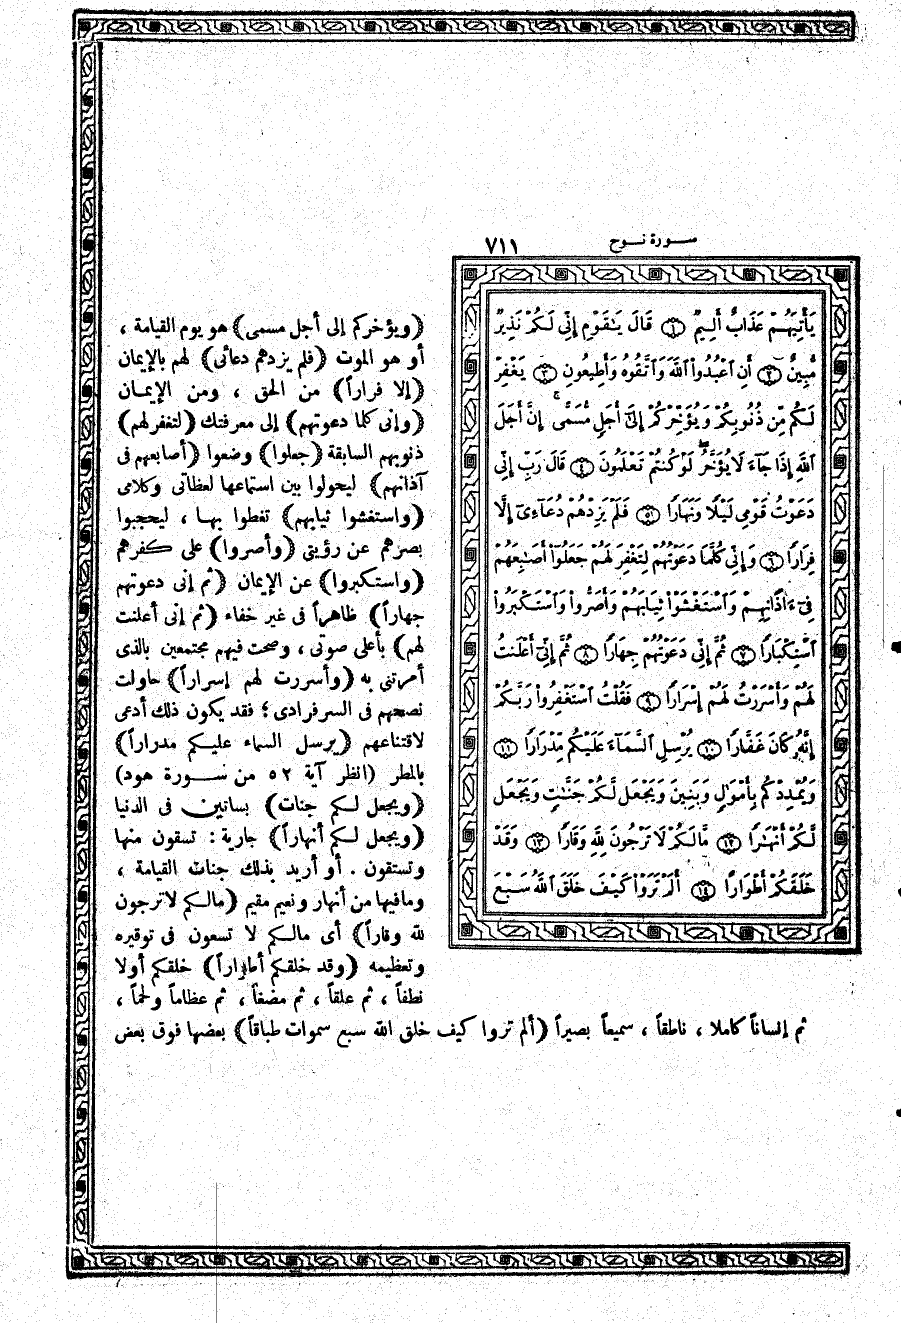 سورة نوح ٧١١
يَأْتِيَهُمْ عَذَابٌ أَلِيمٌ ﴿١﴾ قَالَ يَٰقَوْمِ إِنِّي لَكُمْ نَذِيرٌ
مُّبِينٌ ﴿٢﴾ أَنِ ٱعْبُدُوا۟ ٱللَّهَ وَٱتَّقُوهُ وَأَطِيعُونِ ﴿٣﴾ يَغْفِرْ
لَكُم مِّن ذُنُوبِكُمْ وَيُؤَخِّرْكُمْ إِلَىٰٓ أَجَلٍ مُّسَمًّى ۚ إِنَّ أَجَلَ
ٱللَّهِ إِذَا جَآءَ لَا يُؤَخَّرُ ۖ لَوْ كُنتُمْ تَعْلَمُونَ ﴿٤﴾ قَالَ رَبِّ إِنِّي
دَعَوْتُ قَوْمِي لَيْلًا وَنَهَارًا ﴿٥﴾ فَلَمْ يَزِدْهُمْ دُعَآءِىٓ إِلَّا
فِرَارًا ﴿٦﴾ وَإِنِّي كُلَّمَا دَعَوْتُهُمْ لِتَغْفِرَ لَهُمْ جَعَلُوٓا۟ أَصَٰبِعَهُمْ
فِىٓ ءَاذَانِهِمْ وَٱسْتَغْشَوْا۟ ثِيَابَهُمْ وَأَصَرُّوا۟ وَٱسْتَكْبَرُوا۟
ٱسْتِكْبَارًا ﴿٧﴾ ثُمَّ إِنِّي دَعَوْتُهُمْ جِهَارًا ﴿٨﴾ ثُمَّ إِنِّىٓ أَعْلَنتُ
لَهُمْ وَأَسْرَرْتُ لَهُمْ إِسْرَارًا ﴿٩﴾ فَقُلْتُ ٱسْتَغْفِرُوا۟ رَبَّكُمْ
إِنَّهُۥ كَانَ غَفَّارًا ﴿١٠﴾ يُرْسِلِ ٱلسَّمَآءَ عَلَيْكُم مِّدْرَارًا ﴿١١﴾
وَيُمْدِدْكُم بِأَمْوَٰلٍ وَبَنِينَ وَيَجْعَل لَّكُمْ جَنَّٰتٍ وَيَجْعَل
لَّكُمْ أَنْهَٰرًا ﴿١٢﴾ مَّالَكُمْ لَا تَرْجُونَ لِلَّهِ وَقَارًا ﴿١٣﴾ وَقَدْ
خَلَقَكُمْ أَطْوَارًا ﴿١٤﴾ أَلَمْ تَرَوْا۟ كَيْفَ خَلَقَ ٱللَّهُ سَبْعَ
(ويؤخركم إلى أجل مسمى) هو يوم القيامة ،
أو هو الموت (فلم يزدهم دعائى) لهم بالإيمان
(إلا فراراً) من الحق ، ومن الإيمـان
(وإنى كلما دعوتهم) إلى معرفتك (لتغفر لهم)
ذنوبهم السابقة (جعلوا) وضعوا (أصابعهم فى
آذانهم) ليحولوا بين استماعها لعظاتى وكلامى
(واستغشوا ثيابهم) تغطوا بهـا ، ليحجبوا
بصرهم عن رؤيتى (وأصروا) على كفرهم
(واستكبروا) عن الإيمان (ثم إنى دعوتهم
جهاراً) ظاهراً فى غير خفاء (ثم إنى أعلنت
لهم) بأعلى صوتى ، وصحت فيهم مجتمعين بالذى
أمرتنى به (وأسررت لهم إسراراً) حاولت
نصحهم فى السر فرادى ؛ فقد يكون ذلك أدعى
لاقتناعهم (يرسل السماء عليـكم مدراراً)
بالمطر (انظر آية ٥٢ من سـورة هود)
(ويجعل لـكم جنات) بساتين فى الدنيا
(ويجعل لـكم أنهاراً) جارية : تسقون منها
وتستقون . أو أريد بذلك جنات القيامة ،
ومافيها من أنهار ونعيم مقيم (مالـكم لاترجون
لله وقاراً) أى مالـكم لا تسعون فى توقيره
وتعظيمه (وقد خلقـكم أطواراً) خلقـكم أولا
نطفاً ، ثم علقاً ، ثم مضغاً ، ثم عظاماً ولحماً ،
ثم إنساناً كاملا ، ناطقاً ، سميعاً بصيراً (ألم تروا كيف خلق الله سبع سموات طباقاً) بعضها فوق بعض